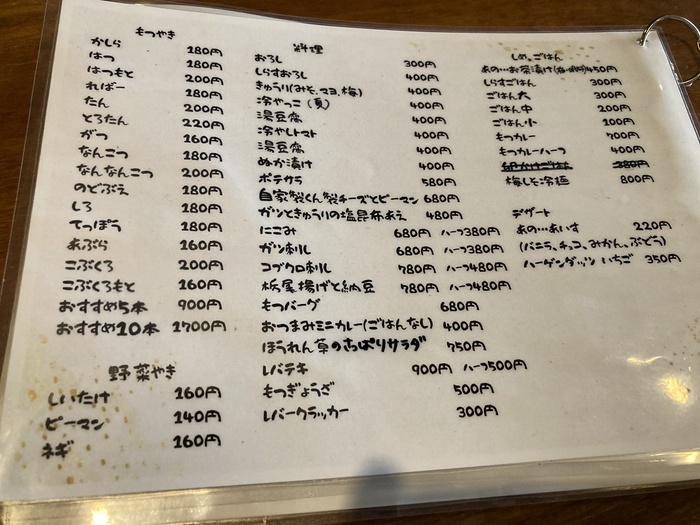 もつやき
かしら 180円
はつ 180円
はつもと 200円
ればー 180円
たん 200円
とろたん 220円
がつ 160円
なんこつ 180円
なんなんこつ 200円
のどぶえ 180円
しろ 180円
てっぽう 180円
あぶら 160円
こぶくろ 200円
こぶくろもと 160円
おすすめ5本 900円
おすすめ10本 1700円
野菜やき
しいたけ 160円
ピーマン 140円
ネギ 160円
料理
おろし 300円
しらすおろし 400円
きゅうり(みそ、マヨ、梅) 400円
冷やっこ(夏) 400円
湯豆腐 400円
冷やしトマト 400円
湯豆腐 400円
ぬか漬け 400円
ポテサラ 580円
自家製くん製チーズとピーマン 680円
ガツときゅうりの塩昆布あえ 480円
にこみ 680円 ハーフ380円
ガツ刺し 680円 ハーフ380円
コブクロ刺し 780円 ハーフ480円
栃尾揚げと納豆 780円 ハーフ480円
もつバーグ 680円
おつまみミニカレー(ごはんなし) 400円
ほうれん草のさっぱりサラダ 750円
レバテキ 900円 ハーフ500円
もつぎょうざ 500円
レバークラッカー 300円
しめ。ごはん
あの…お茶漬け 450円
しらすごはん 300円
ごはん大 300円
ごはん中 200円
ごはん小 100円
もつカレー 700円
もつカレーハーフ 400円
卵かけごはん 380円
梅しそ冷麺 800円
デザート
あの…あいす 220円
(バニラ、チョコ、みかん、ぶどう)
ハーゲンダッツ いちご 350円